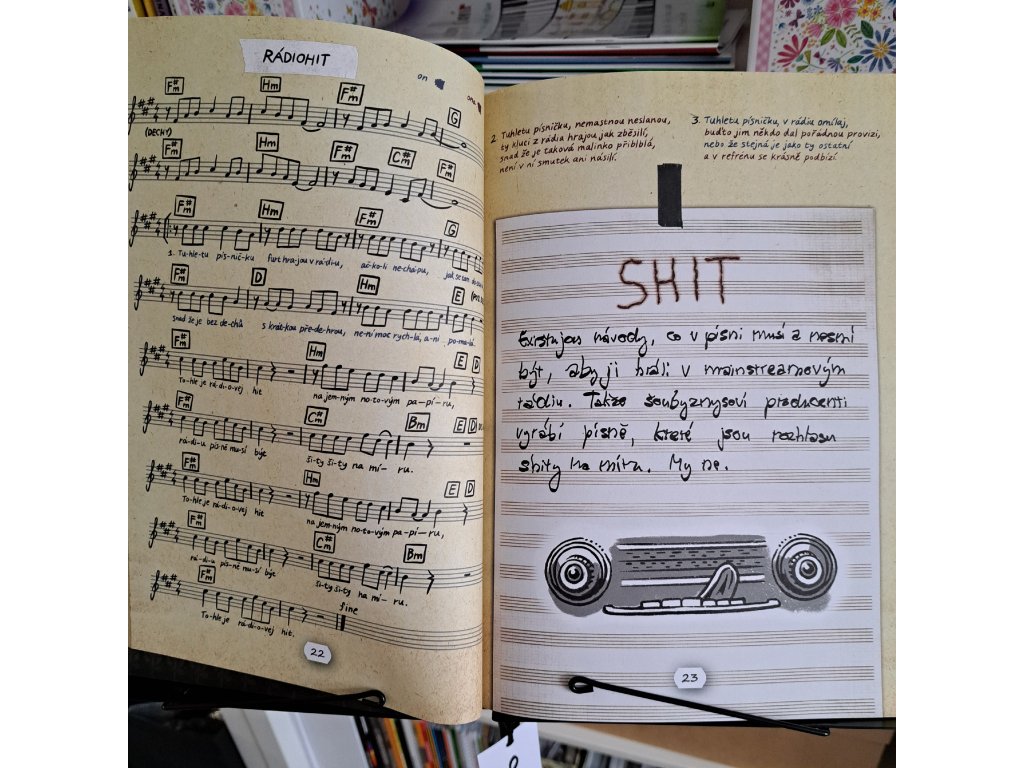 RÁDIOHIT
on
F#m Hm F#m G
(DECHY)
F#m Hm F#m C# F#m
F#m Hm F#m G
1. Tu-hle-tu pís-nič-ku furt hra-jou v rá-di-u, ač-ko-li ne-chá-pu, jak se tam
F#m D Hm E
Snad že je bez de-chů s krát-kou pře-de-hrou, ne-ní moc rych-lá, a-ni po-ma-lá.
F#m Hm E D
To-hle je rá-di-o-vej hit na jem-ným no-to-vým pa-pí-ru,
F#m C#m Bm E D
rá-di-u pís-ně mu-sí být ši-ty ši-ty na mí-ru.
F#m Hm E D
To-hle je rá-di-o-vej hit na jem-ným no-to-vým pa-pí-ru,
F#m C#m Bm
rá-di-u pís-ně mu-sí být ši-ty ši-ty na mí-ru.
F#m fine
To-hle je rá-di-o-vej hit.
22
2. Tuhletu písničku, nemastnou neslanou,
ty kluci z rádia hrajou jak zběsilí,
snad že je taková malinko přiblblá,
není v ní smutek ani násilí.
3. Tuhletu písničku, v rádiu omílaj,
buďto jim někdo dal pořádnou provizi,
nebo že stejná je jako ty ostatní
a v refrénu se krásně podbízí
SHIT
Existujou návody, co v písni musí a nesmí
být, aby ji hráli v mainstreamovým
rádiu. Takže šoubyznysoví producenti
vyrábí písně, které jsou rozhlasu
shity na míru. My ne.
23